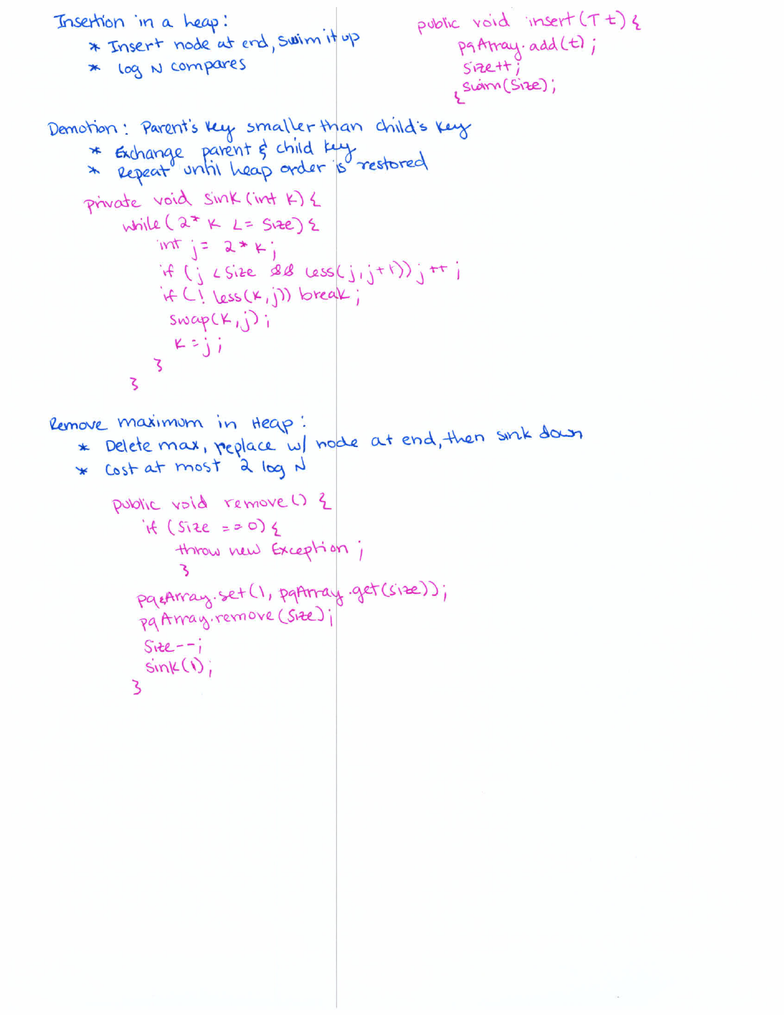 Insertion in a heap:
* Insert node at end, swim it up
* log N compares
public void insert(T t) {
pqArray.add(t);
size++;
swim(size);
{
Demotion: Parent's key smaller than child's key
* Exchange parent & child key
* Repeat until heap order is restored
private void sink(int k) {
while(2* k <= size) {
int j = 2 * k;
if (j < size && less(j,j+1)) j++;
if (! less(k,j)) break;
swap(k,j);
k = j;
}
}
Remove maximum in Heap:
* Delete max, replace w/ node at end, then sink down
* Cost at most 2 log N
public void remove() {
if (size == 0) {
throw new Exception;
}
pqArray.set(1, pqArray.get(size));
pqArray.remove(size);
size--;
sink(1);
}